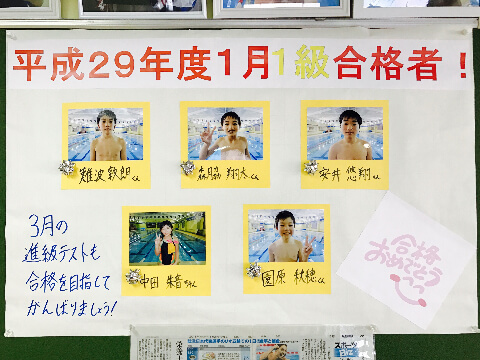 平成29年度1月1級合格者！
難波 敦郎くん
森脇 翔太くん
安井 悠翔くん
中田 朱音ちゃん
園原 秋穂くん
3月の
進級テストも
合格を目指して
がんばりましょう！
合格
おめでとう
スポーツ